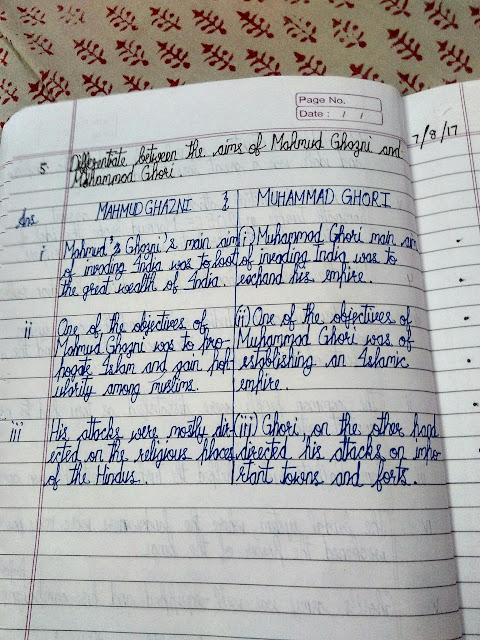 Page No.
Date : / /
7/8/17
5 Differentiate between the aims of Mahmud Ghazni and
Mohammad Ghori.
Ans
MAHMUD GHAZNI & MUHAMMAD GHORI
i Mahmud's Ghazni's main aim
of invading India was to loot
the great wealth of India.
(i) Muhammad Ghori main aim
of invading India was to
exchand his empire.
ii One of the objectives of
Mahmud Ghazni was to pro-
pogate Islam and gain pop-
ularity among muslims.
(ii) One of the objectives of
Muhammad Ghori was of
establishing an Islamic
empire.
iii His attacks were mostly dir-
ected on the religious places
of the Hindus.
(iii) Ghori, on the other hand
directed his attacks on impo-
rtant towns and forts.